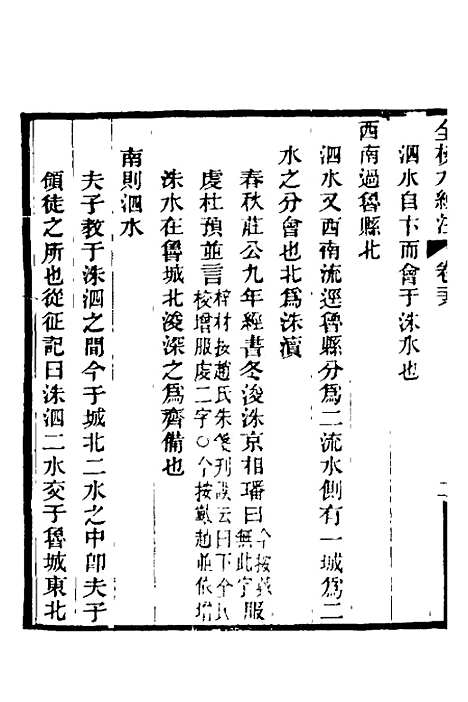 全校水經注 卷
二
泗水自卞而會于洙水也
西南過魯縣北
泗水又西南流逕魯縣分爲二流水側有一城爲二
水之分會也北爲洙瀆
春秋莊公九年經書冬浚洙京相璠曰今按戴無此字服
虔杜預並言梓材按趙氏朱箋刊誤云曰下全氏校增服虔二字○今按戴趙並依增
洙水在魯城北浚深之爲齊備也
南則泗水
夫子教于洙泗之間今于城北二水之中卽夫子
領徒之所也從征記曰洙泗二水交于魯城東北